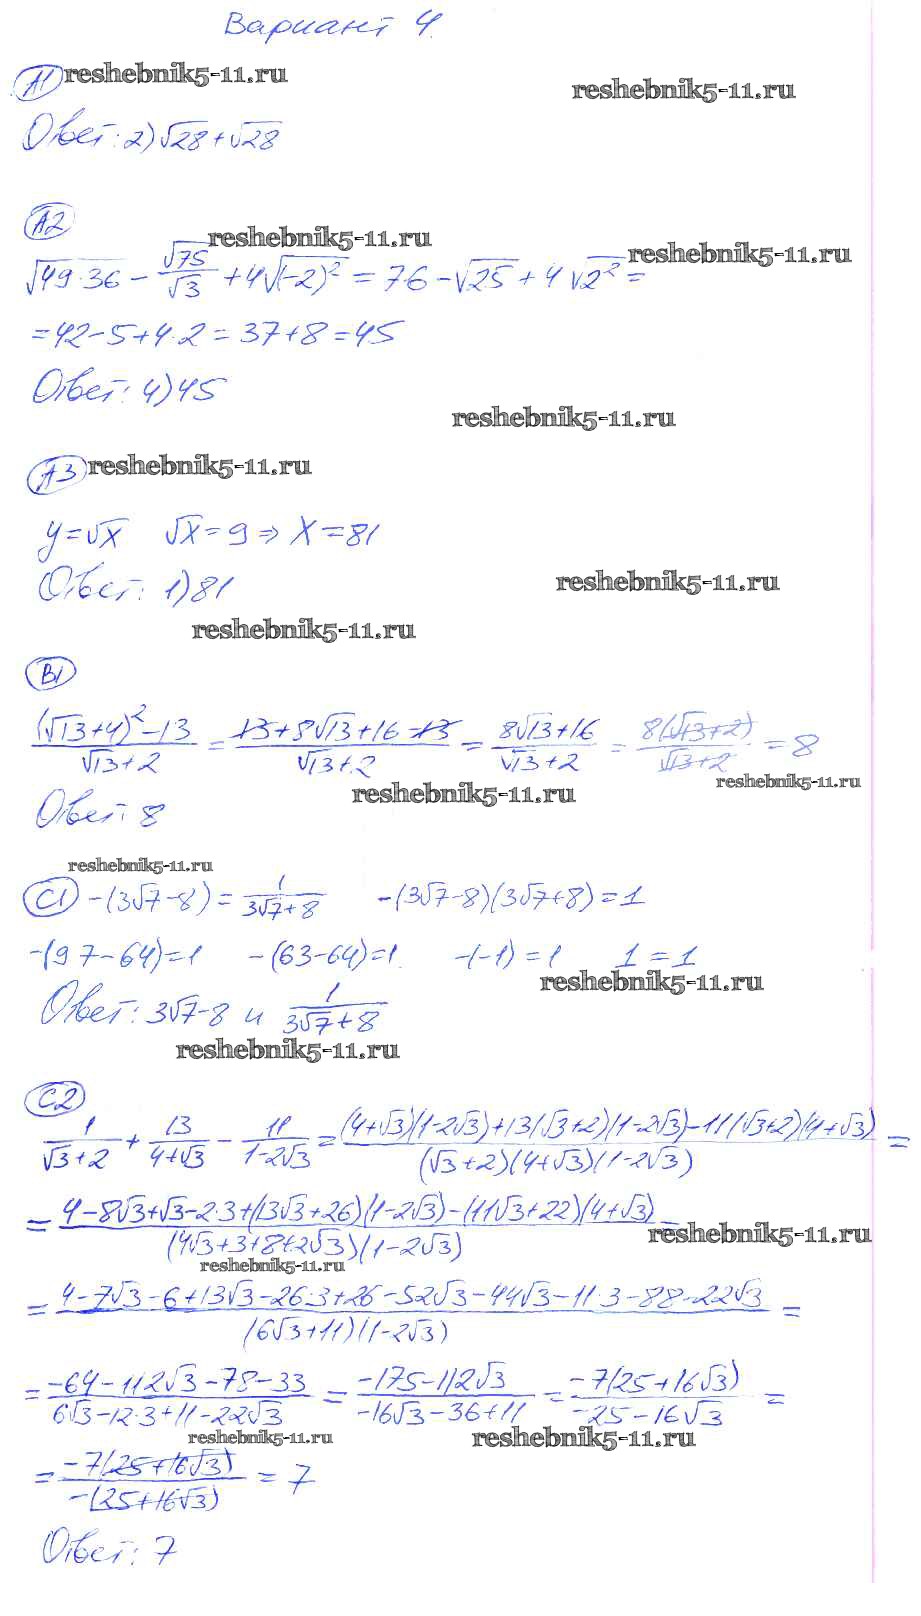 Вариант 4.
А1 reshebnik5-11.ru
reshebnik5-11.ru
Ответ: 2) √28+√28
А2 reshebnik5-11.ru
reshebnik5-11.ru
√(49·36) − √75/√3 + 4√(−2)² = 7·6 − √25 + 4√2² =
= 42−5+4·2 = 37+8 = 45
Ответ: 4) 45
reshebnik5-11.ru
А3 reshebnik5-11.ru
y=√x √x=9 ⇒ x=81
Ответ: 1) 81
reshebnik5-11.ru
reshebnik5-11.ru
В1
((√13+4)²−13)/(√13+2) = (13+8√13+16−13)/(√13+2) = (8√13+16)/(√13+2) = 8(√13+2)/(√13+2) = 8
reshebnik5-11.ru
reshebnik5-11.ru
Ответ: 8
reshebnik5-11.ru
С1 −(3√7−8) = 1/(3√7+8) −(3√7−8)(3√7+8)=1
−(9·7−64)=1 −(63−64)=1. −(−1)=1 1=1
reshebnik5-11.ru
Ответ: 3√7−8 и 1/(3√7+8)
reshebnik5-11.ru
С2
1/(√3+2) + 13/(4+√3) − 11/(1−2√3) = ((4+√3)(1−2√3)+13(√3+2)(1−2√3)−11(√3+2)(4+√3))/((√3+2)(4+√3)(1−2√3)) =
= (4−8√3+√3−2·3+(13√3+26)(1−2√3)−(11√3+22)(4+√3))/((4√3+3+8+2√3)(1−2√3)) =
reshebnik5-11.ru
reshebnik5-11.ru
= (4−7√3−6+13√3−26·3+26−52√3−44√3−11·3−88−22√3)/((6√3+11)(1−2√3)) =
= (−64−112√3−78−33)/(6√3−12·3+11−22√3) = (−175−112√3)/(−16√3−36+11) = −7(25+16√3)/(−25−16√3) =
reshebnik5-11.ru
reshebnik5-11.ru
= −7(25+16√3)/(−(25+16√3)) = 7
Ответ: 7